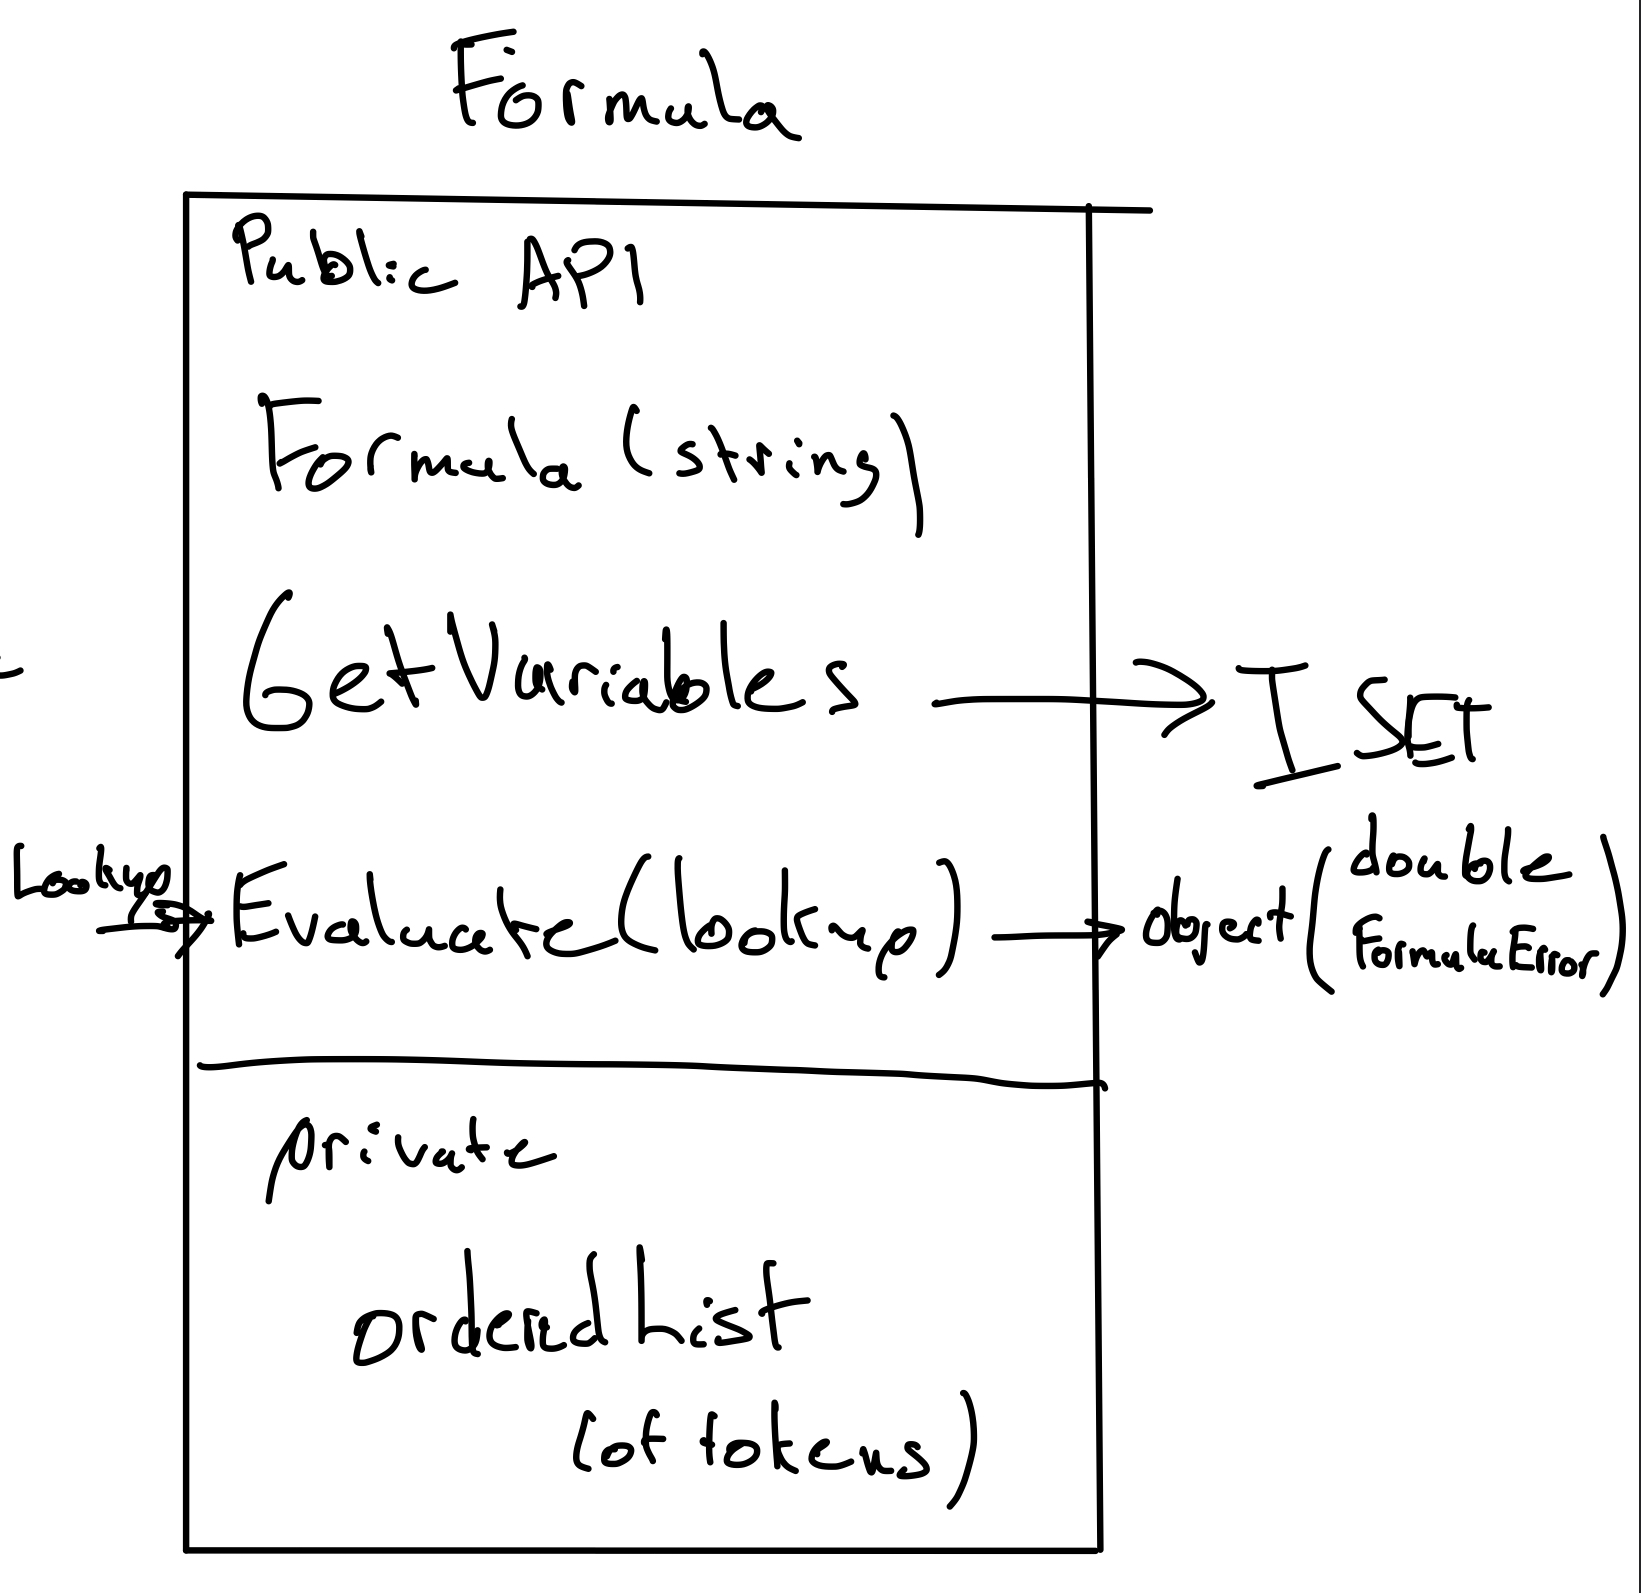 Formula
Public API
Formula (string)
GetVariables
ISET
Lookup
Evaluate(lookup)
object
(double
FormulaError)
private
ordered List
(of tokens)